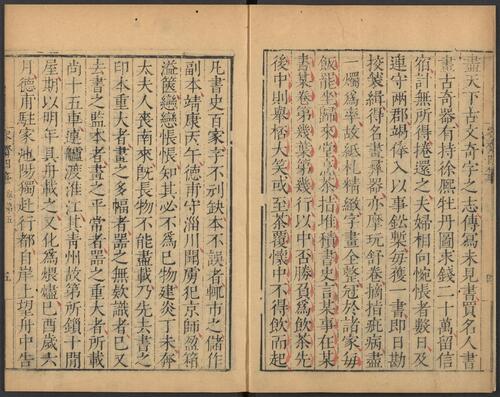 盡天下古文奇字之志傳寫未見書買名人書
畫古奇器有持徐熙牡丹圖求錢二十萬留信
宿計無所得捲還之夫婦相向惋悵者數日及
連守兩郡竭俸入以事鉛槧每獲一書即日勘
挍裝緝得名畫彝器亦摩玩舒卷摘指疵病盡
一燭為率故紙札精緻字畫全整冠於諸家每
飯罷坐歸來堂烹茶指堆積書史言某事在某
書某卷第幾葉第幾行以中否勝負為飲茶先
後中則舉杯大笑或至茶覆懷中不得飲而起
凡書史百家字不刓缺本不誤者輒市之儲作
副本靖康丙午德甫守淄川聞虜犯京師盈箱
溢篋戀戀悵悵知其必不為己物建炎丁未奔
太夫人喪南來既長物不能盡載乃先去書之
印本重大者畫之多幅者器之無款識者已又
去書之監本者畫之平常者器之重大者所載
尚十五車連艫渡淮江其青州故第所鎖十間
屋期以明年具舟載之又化為煨燼己酉歲六
月德甫駐家池陽獨赴行都自岸上望舟中告
容齋四筆 卷第五 五